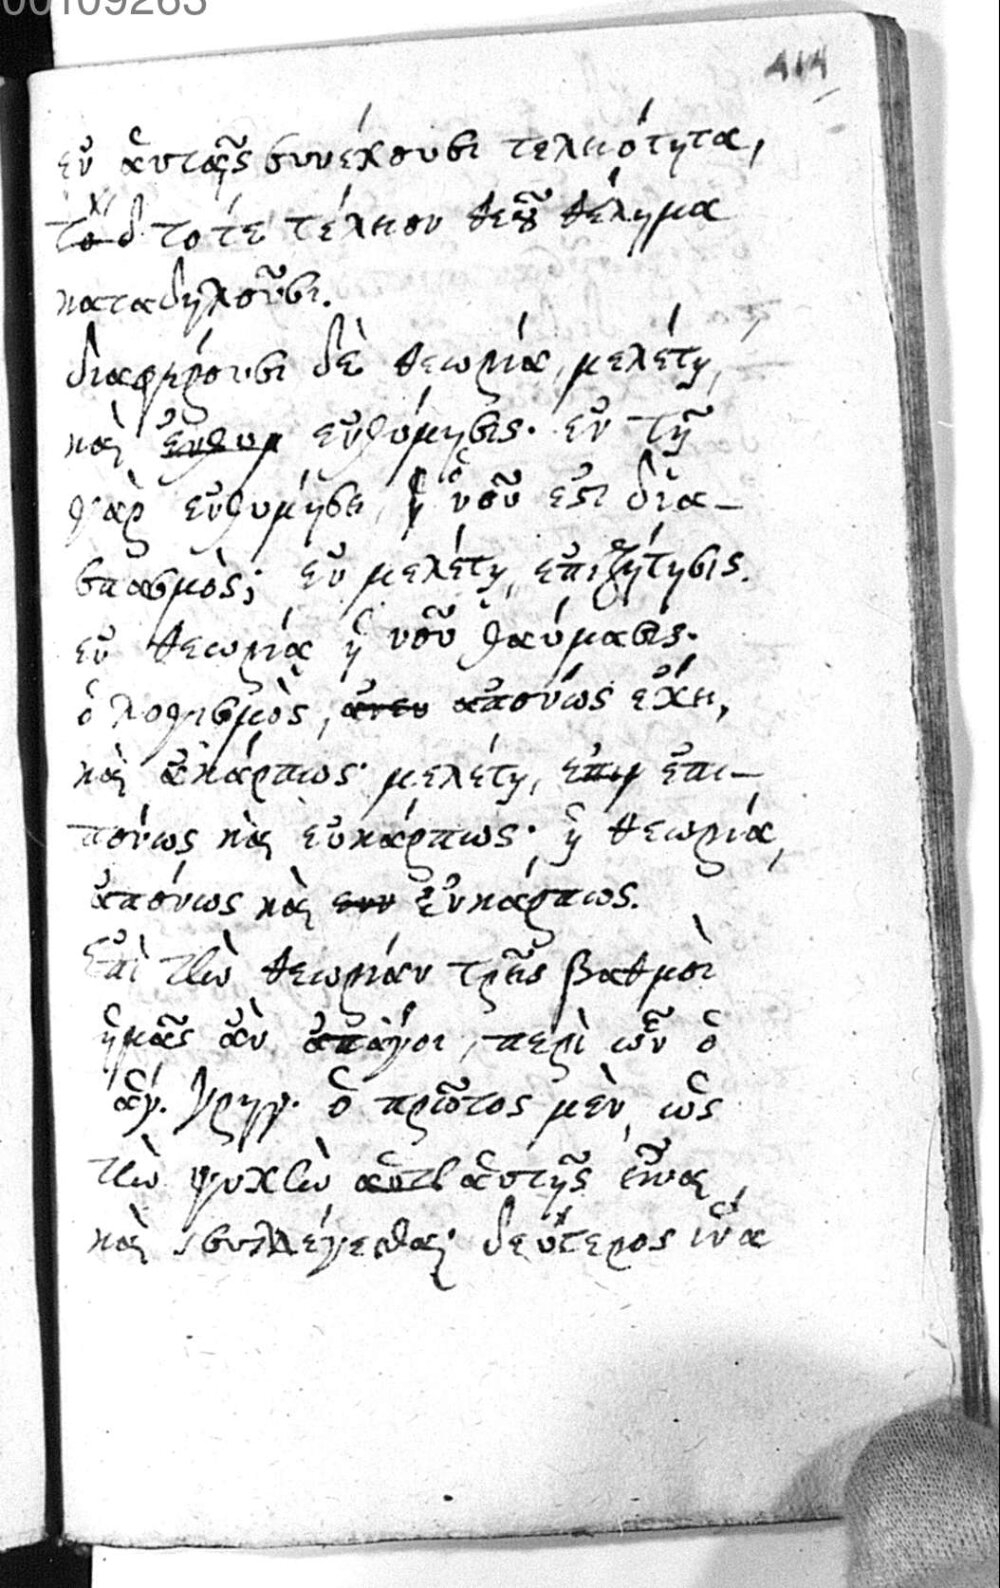 00109263
414
ἐν ἁυταῖς συνέχουσι τελειότητα,
τὸ δ. τό τέ τέλειον θεοῦ θέλημα
καταδηλοῦσι.
διαφέρουσι δὲ θεωρία, μελέτη,
καὶ ἐνθυμ ἐνθύμησις· ἐν τῇ
γὰρ ἐνθυμήσει, ἡ νοῦ ἐστι δια-
σπασμὸς; ἐν μελέτῃ, ἐπιζήτησις.
ἐν θεωρία ἡ νοῦ θαύμασις·
ὁ λογισμὸς, ἄνευ ἀπόνως ἔχει,
καὶ ἀκάρπως· μελέτη, ἐπιμ ἐπι-
πόνως καὶ εὐκάρπως· ἡ θεωρία,
ἀπόνως καὶ ευν εὐκάρπως.
Ἐπὶ τὴν θεωρίαν τρεῖς βαθμοὶ
ἡμᾶς ἂν ἀπάγοι, περὶ ὧν ὁ
ἅγ. Γρηγ. ὁ πρῶτος μὲν ὡς
τὴν ψυχὴν ἀυτὴ ἁυτῆς εἶναι,
καὶ συλλέγεσθαι· δεύτερος ἵνα